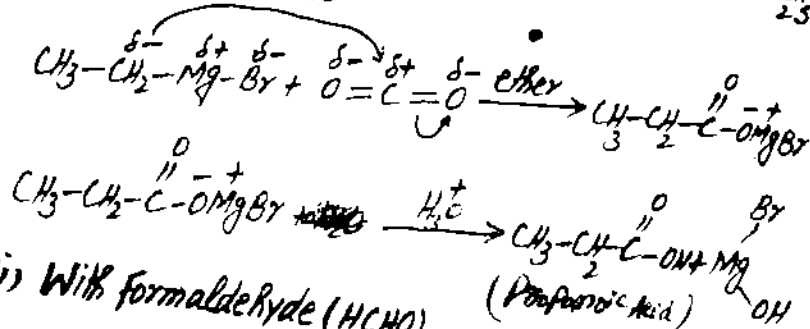 23
δ- δ+ δ- δ- δ+ δ-
CH3-CH2-Mg-Br + O=C=O ether → CH3-CH2-C(=O)-O⁻MgBr⁺
CH3-CH2-C(=O)-O⁻MgBr⁺ H3O⁺ → CH3-CH2-C(=O)-OH + Mg(Br)(OH)
(Propanoic Acid)
i) With Formaldehyde (HCHO)